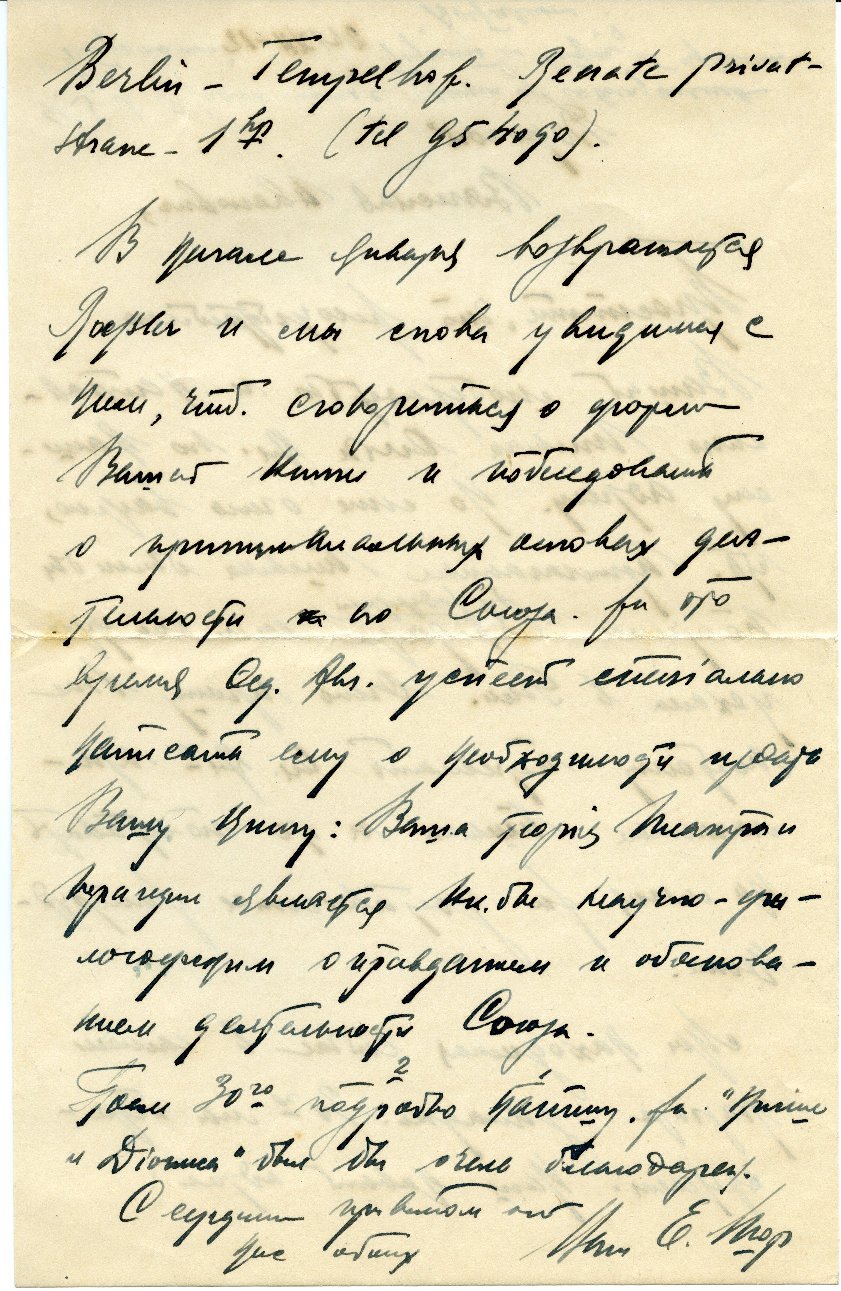 Berlin – Tempelhof. Renate privat-
strasse – 1 hp. (tel G5 4090).
В начале января возвращается
и мы снова увидимся с
ним, чтб. сговориться о форме
Вашей книги и побеседовать
о принципиальных основах дея-
тельности его Союза. За это
время Фед. Авг. успеет специально
написать ему о необходимости издать
Вашу книгу: Ваша теорія
трагедии является как бы научно-фи-
лософским оправданием и обоснова-
нием деятельности Союза.
После 30го подробно напишу. За "
и Диониса" был бы очень благодарен.
С сердечным приветом от
нас обоих Ваш Е. Шор